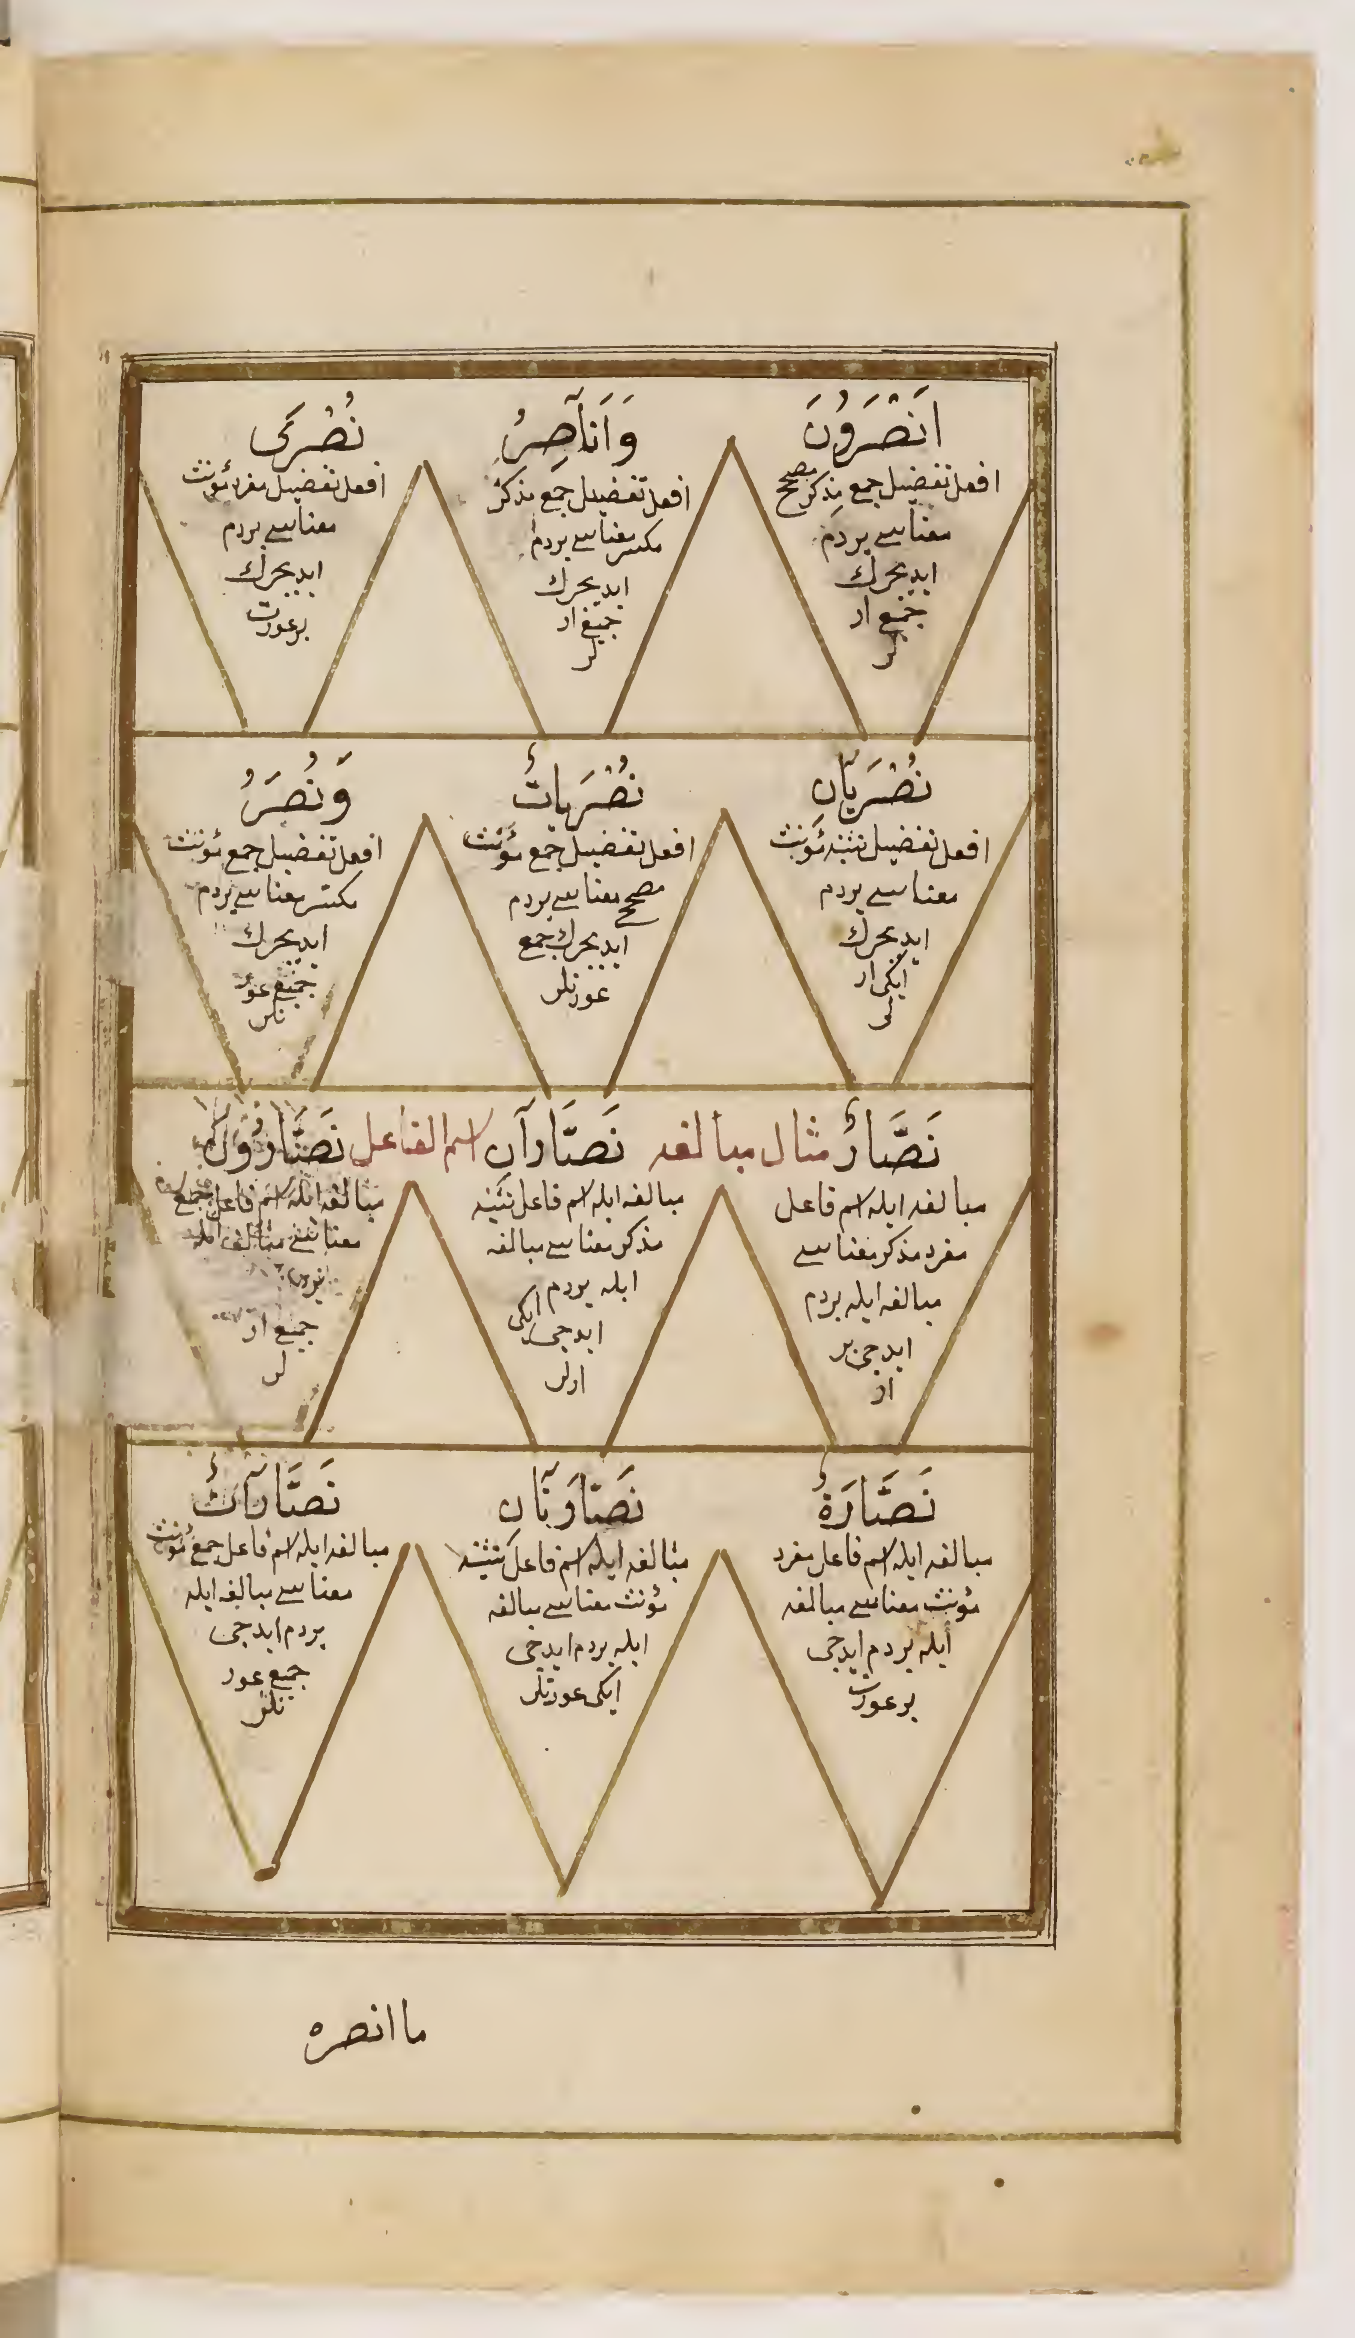 اَنْصَرُونَ
افعل تفضيل جمع مذكر مصحح
معناسى يردم
ايديجرك
جميع ار
لر
وَاَنَاصِرُ
افعل تفضيل جمع مذكر
مكسر معناسى يردم
ايديجرك
جميع ار
لر
نُصْرَى
افعل تفضيل مفرد مؤنث
معناسى يردم
ايديجرك
بر عورت
نُصْرَيَانِ
افعل تفضيل تثنيه مؤنث
معناسى يردم
ايديجرك
ايكى ار
لر
نُصْرَيَاتٌ
افعل تفضيل جمع مؤنث
مصحح معناسى يردم
ايديجرك جمع
عورتلر
وَنُصَرُ
افعل تفضيل جمع مؤنث
مكسر معناسى يردم
ايديجرك
جميع عور
تلر
نَصَّارٌ مثال مبالغه نَصَّارَانِ اسم الفاعل نَصَّارُونَ
مبالغه ايله اسم فاعل
مفرد مذكر معناسى
مبالغه ايله يردم
ايدجى بر
ار
مبالغه ايله اسم فاعل تثنيه
مذكر معناسى مبالغه
ايله يردم
ايدجى ايكى
ارلر
مبالغه ايله اسم فاعل جمع
معناسى مبالغه ايله
جميع ار
لر
نَصَّارَةٌ
مبالغه ايله اسم فاعل مفرد
مؤنث معناسى مبالغه
ايله يردم ايدجى
بر عورت
نَصَّارَتَانِ
مبالغه ايله اسم فاعل تثنيه
مؤنث معناسى مبالغه
ايله يردم ايدجى
ايكى عورتلر
نَصَّارَاتٌ
مبالغه ايله اسم فاعل جمع مؤنث
معناسى مبالغه ايله
يردم ايدجى
جميع عور
تلر
ما انصره